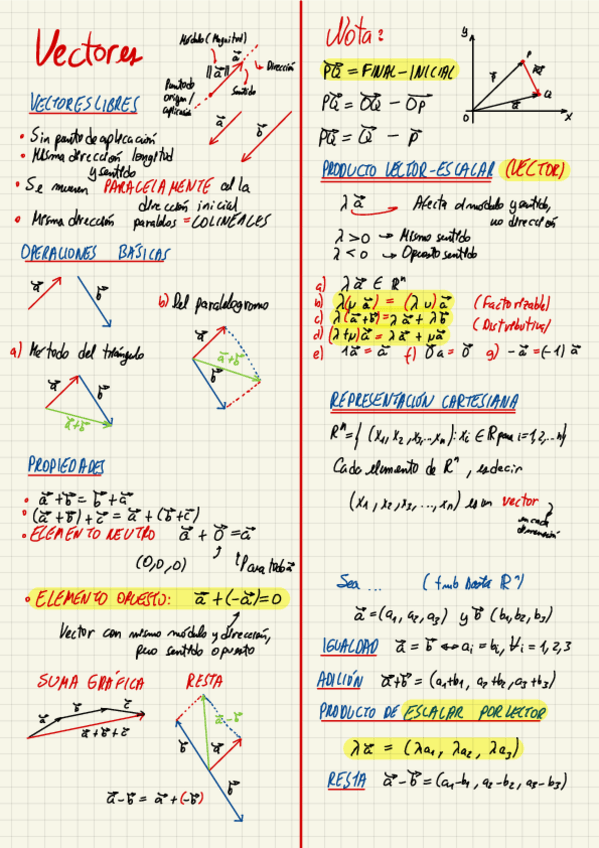 Vectores
Módulo (Magnitud)
||a⃗||
a⃗
Dirección
Sentido
Punto de
origen/
aplicación
VECTORES LIBRES
a⃗
b⃗
• Sin punto de aplicación
• Misma dirección longitud
y sentido
• Se mueven PARALELAMENTE a la
dirección inicial
• Misma dirección paralelos = COLINEALES
OPERACIONES BÁSICAS
a⃗
b⃗
b) Del paralelogramo
a⃗
a⃗+b⃗
b⃗
a) Método del triángulo
a⃗
b⃗
a⃗+b⃗
PROPIEDADES
• a⃗ + b⃗ = b⃗ + a⃗
• (a⃗ + b⃗) + c⃗ = a⃗ + (b⃗ + c⃗)
• ELEMENTO NEUTRO a⃗ + 0⃗ = a⃗
(0,0,0)
Para todo a⃗
• ELEMENTO OPUESTO: a⃗ + (-a⃗) = 0
Vector con mismo módulo y dirección,
pero sentido opuesto
SUMA GRÁFICA
a⃗
b⃗
c⃗
a⃗ + b⃗ + c⃗
RESTA
a⃗ - b⃗
b⃗
a⃗
b⃗
a⃗ - b⃗ = a⃗ + (-b⃗)
Nota:
PQ⃗ = FINAL - INICIAL
PQ⃗ = OQ⃗ - OP⃗
PQ⃗ = Q⃗ - P⃗
y
P
Q
O
x
PRODUCTO VECTOR-ESCALAR (VECTOR)
λ a⃗ Afecta al módulo y sentido,
no dirección
λ > 0 → Mismo sentido
λ < 0 → Opuesto sentido
a) λ a⃗ ∈ Rⁿ
b) λ(μ a⃗) = (λ μ) a⃗ (Factorizable)
c) λ(a⃗+b⃗) = λ a⃗ + λ b⃗ (Distributiva)
d) (λ+μ) a⃗ = λ a⃗ + μ a⃗
e) 1a⃗ = a⃗ f) 0a⃗ = 0⃗ g) -a⃗ = (-1) a⃗
REPRESENTACIÓN CARTESIANA
Rⁿ = { (x₁, x₂, x₃, ... xₙ) : xᵢ ∈ R para i = 1, 2, ... n}
Cada elemento de Rⁿ, es decir
(x₁, x₂, x₃, ..., xₙ) es un vector
en cada
dimensión
Sea ... (tmb hasta Rⁿ)
a⃗ = (a₁, a₂, a₃) y b⃗ (b₁, b₂, b₃)
IGUALDAD a⃗ = b⃗ ↔ aᵢ = bᵢ, ∀ᵢ = 1, 2, 3
ADICIÓN a⃗+b⃗ = (a₁+b₁, a₂+b₂, a₃+b₃)
PRODUCTO DE ESCALAR POR VECTOR
λ a⃗ = (λa₁, λa₂, λa₃)
RESTA a⃗ - b⃗ = (a₁-b₁, a₂-b₂, a₃-b₃)